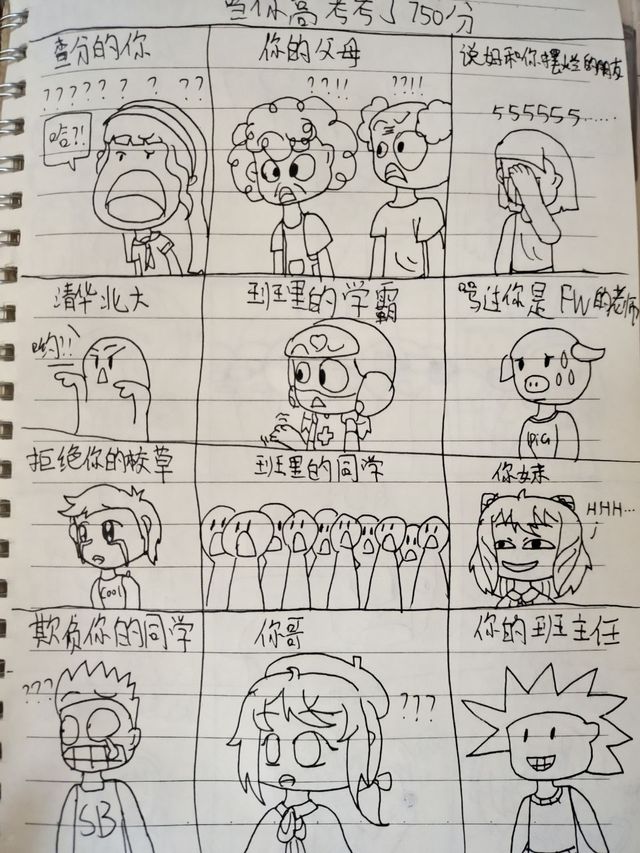 当你高考考了750分
查分的你
? ? ? ? ? ? ? ? ?
哈?!
你的父母
??!! ??!!
说好和你摆烂的朋友
555555……
清华北大
哟!!
班里的学霸
骂过你是FW的老师
PIG
拒绝你的校草
COOl
班里的同学
你妹
HHH…
欺负你的同学
???
SB
你哥
???
你的班主任